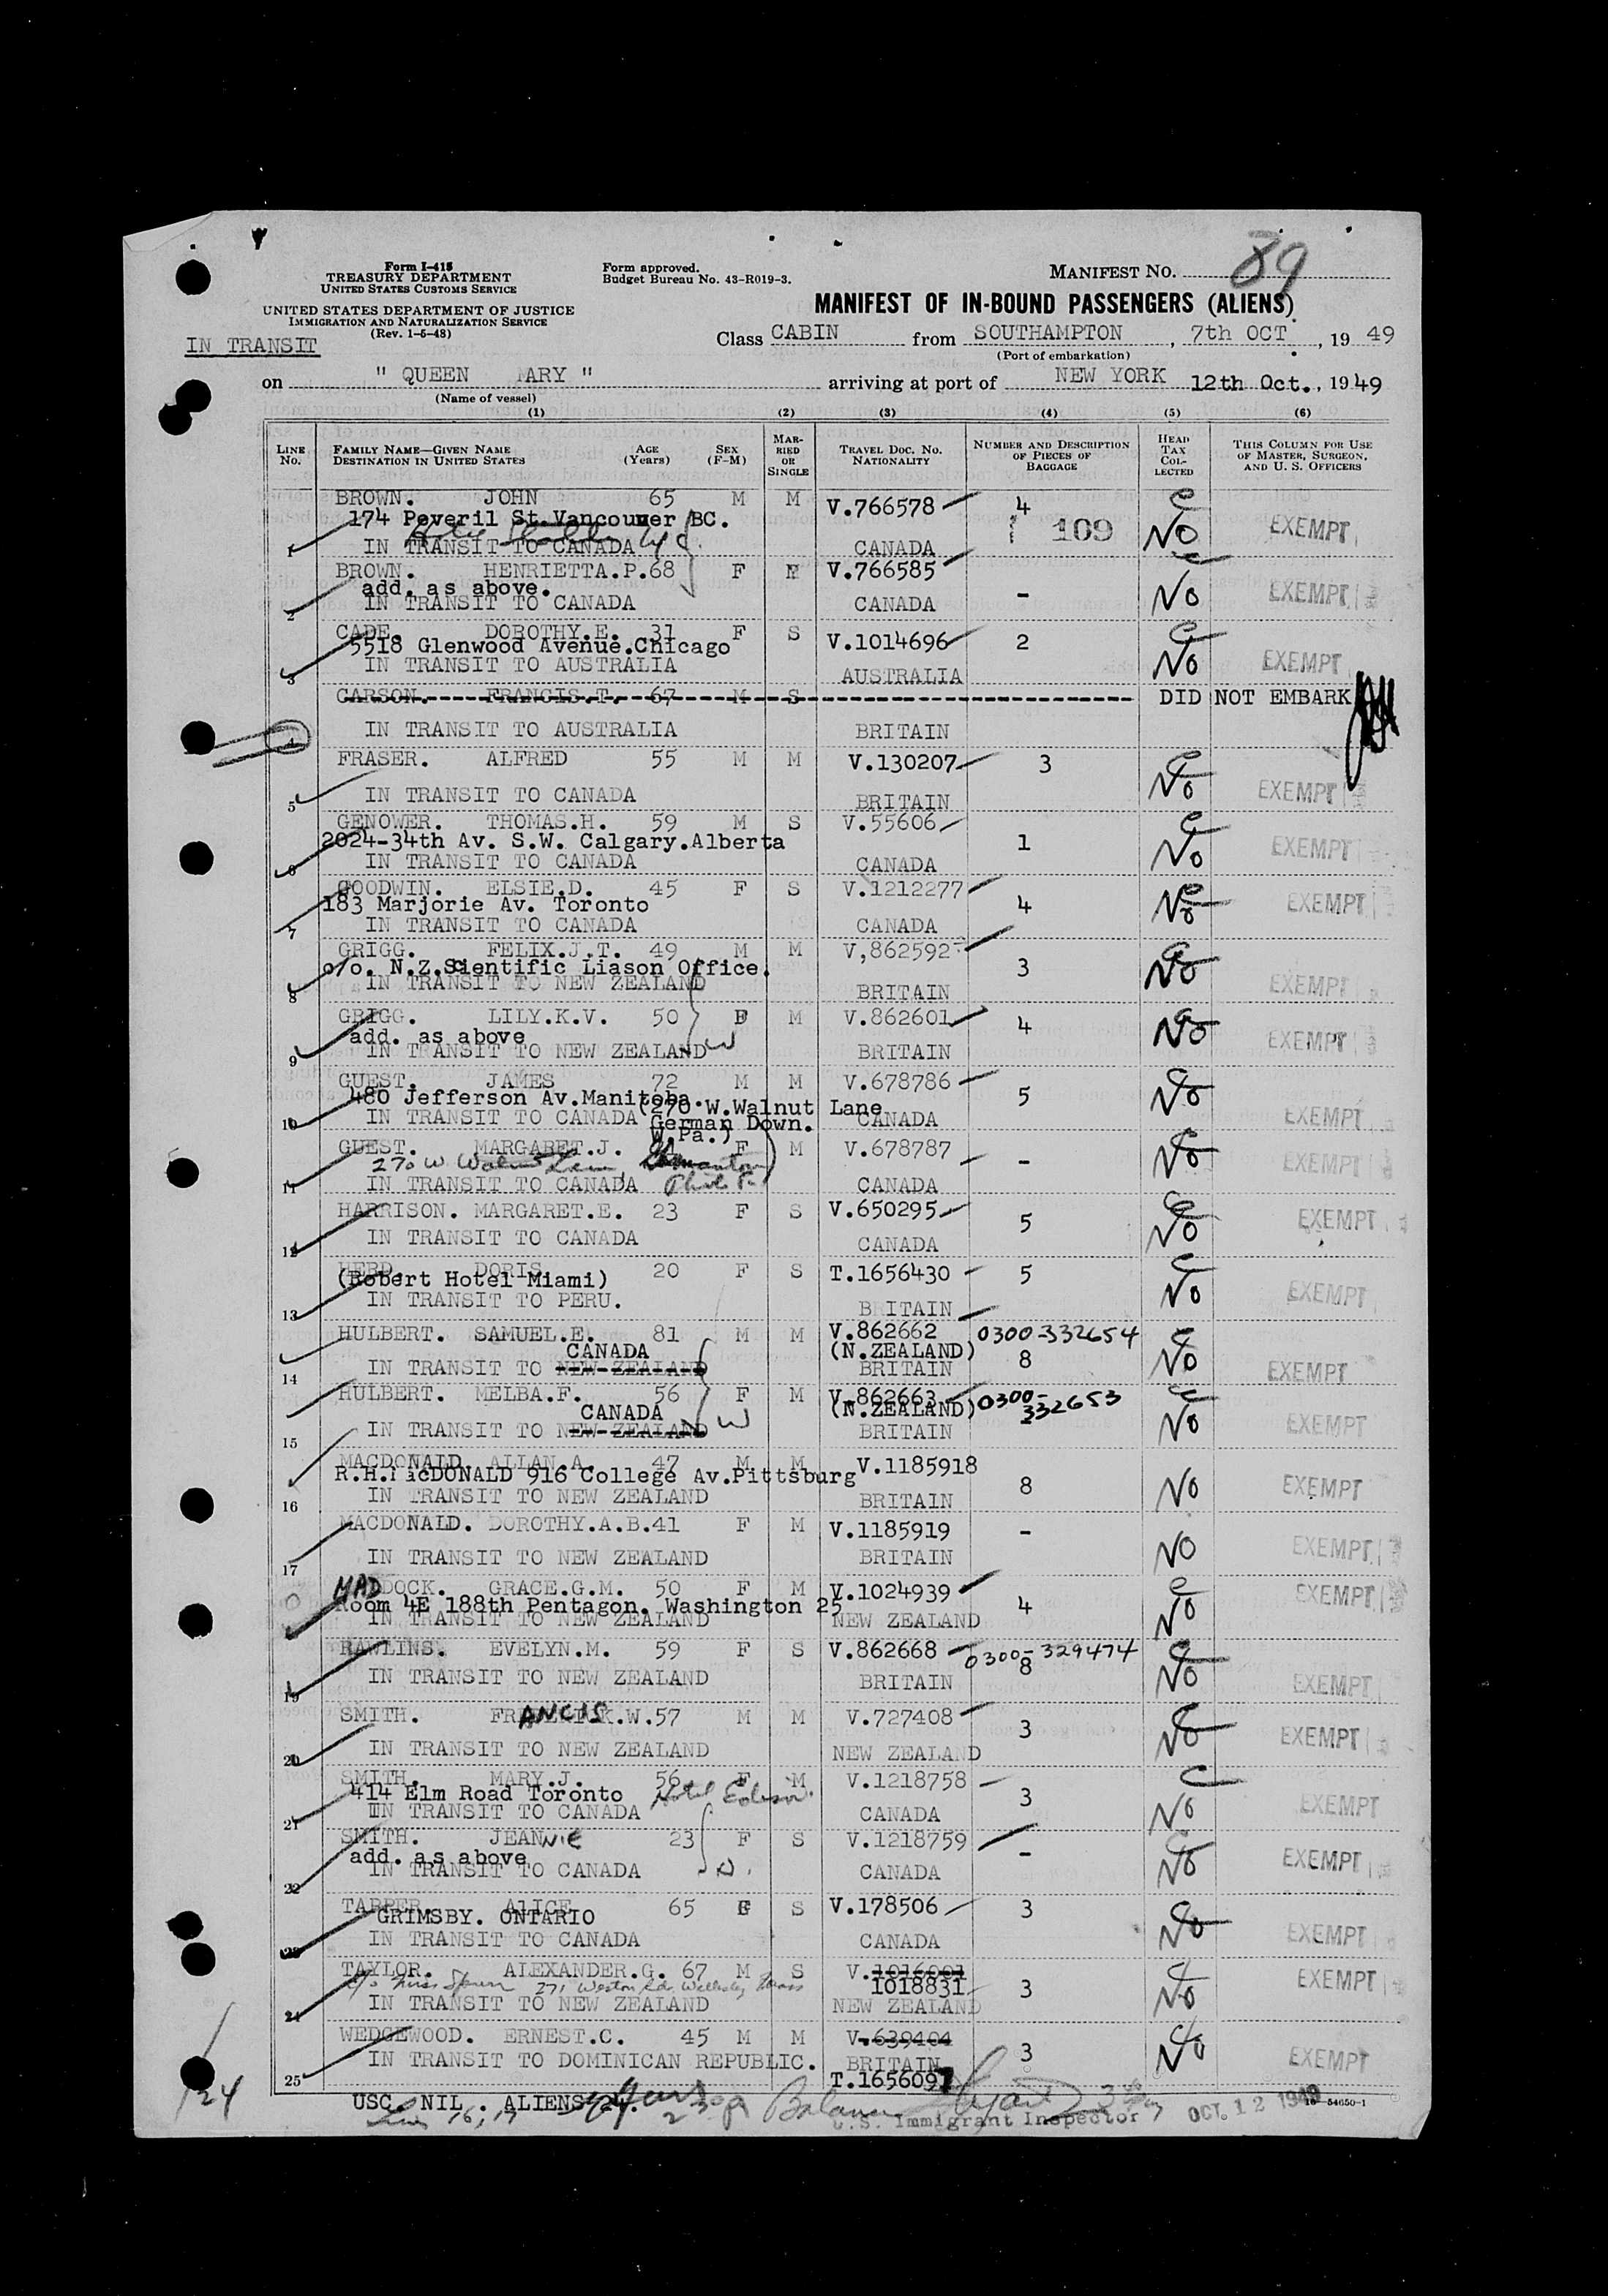 89
Form I-418
TREASURY DEPARTMENT
UNITED STATES CUSTOMS SERVICE
Form approved.
Budget Bureau No. 43-R019-3.
MANIFEST NO.
UNITED STATES DEPARTMENT OF JUSTICE
IMMIGRATION AND NATURALIZATION SERVICE
(Rev. 1-5-48)
MANIFEST OF IN-BOUND PASSENGERS (ALIENS)
IN TRANSIT
Class CABIN from SOUTHAMPTON, 7th OCT, 19 49
(Port of embarkation)
on " QUEEN ARY " arriving at port of NEW YORK 12th Oct., 1949
(Name of vessel)
(1) (2) (3) (4) (5) (6)
LINE NO. FAMILY NAME—GIVEN NAME DESTINATION IN UNITED STATES AGE (YEARS) SEX (F-M) MARRIED OR SINGLE TRAVEL DOC. NO. NATIONALITY NUMBER AND DESCRIPTION OF PIECES OF BAGGAGE HEAD TAX COLLECTED THIS COLUMN FOR USE OF MASTER, SURGEON, AND U. S. OFFICERS
BROWN. JOHN 65 M M V.766578 4
174 Peveril St.Vancouver BC. 109 No EXEMPT
1 IN TRANSIT TO CANADA CANADA
BROWN. HENRIETTA.P.68 F M V.766585
add. as above. - No EXEMPT
2 IN TRANSIT TO CANADA CANADA
CADE. DOROTHY.E. 31 F S V.1014696 2
5518 Glenwood Avenue.Chicago No EXEMPT
3 IN TRANSIT TO AUSTRALIA AUSTRALIA
CARSON. FRANCIS.T. 67 M S DID NOT EMBARK
4 IN TRANSIT TO AUSTRALIA BRITAIN
FRASER. ALFRED 55 M M V.130207 3
5 IN TRANSIT TO CANADA BRITAIN No EXEMPT
GENOWER. THOMAS.H. 59 M S V.55606
2024-34th Av. S.W. Calgary.Alberta 1
6 IN TRANSIT TO CANADA CANADA No EXEMPT
GOODWIN. ELSIE.D. 45 F S V.1212277
183 Marjorie Av. Toronto 4 No EXEMPT
7 IN TRANSIT TO CANADA CANADA
GRIGG. FELIX.J.T. 49 M M V,862592
c/o. N.Z.Scientific Liason Office. 3 No
8 IN TRANSIT TO NEW ZEALAND BRITAIN EXEMPT
GRIGG. LILY.K.V. 50 F M V.862601 4 No
add. as above EXEMPT
9 IN TRANSIT TO NEW ZEALAND W BRITAIN
GUEST. JAMES 72 M M V.678786
480 Jefferson Av.Manitoba. 5 No
(270 W.Walnut Lane
10 IN TRANSIT TO CANADA CANADA EXEMPT
German Down.
W.Pa.)
GUEST. MARGARET.J. F M V.678787
270 W. Walnut - No EXEMPT
11 IN TRANSIT TO CANADA CANADA
HARRISON. MARGARET.E. 23 F S V.650295 5 No EXEMPT
12 IN TRANSIT TO CANADA CANADA
HERD. DORIS 20 F S T.1656430 5
(Robert Hotel Miami) No EXEMPT
13 IN TRANSIT TO PERU. B ITAIN
HULBERT. SAMUEL.E. 81 M M V.862662 0300-332654
CANADA (N.ZEALAND) 8 No
14 IN TRANSIT TO NEW ZEALAND BRITAIN EXEMPT
HULBERT. MELBA.F. 56 F M V.862663 0300-
CANADA W (N.ZEALAND) 332653 No
15 IN TRANSIT TO NEW ZEALAND BRITAIN EXEMPT
MACDONALD. ALLAN.A. 47 M M V.1185918
R.H.MacDONALD 916 College Av.Pittsburg 8 No EXEMPT
16 IN TRANSIT TO NEW ZEALAND BRITAIN
MACDONALD. DOROTHY.A.B.41 F M V.1185919 -
17 IN TRANSIT TO NEW ZEALAND BRITAIN NO EXEMPT
MADDOCK. GRACE.G.M. 50 F M V.1024939 EXEMPT
Room 4E 188th Pentagon. Washington 25 4 No
IN TRANSIT TO NEW ZEALAND NEW ZEALAND
RAWLINS. EVELYN.M. 59 F S V.862668 0300-329474
8
19 IN TRANSIT TO NEW ZEALAND BRITAIN No EXEMPT
SMITH. FRANCIS K.W.57 M M V.727408 3
20 IN TRANSIT TO NEW ZEALAND NEW ZEALAND No EXEMPT
SMITH. MARY.J. 56 F M V.1218758
414 Elm Road Toronto Hotel Edison 3
21 IN TRANSIT TO CANADA CANADA No EXEMPT
SMITH. JEANNIE 23 F S V.1218759
add. as above - No EXEMPT
22 IN TRANSIT TO CANADA CANADA
TAPPER. ALICE 65 F S V.178506 3
GRIMSBY. ONTARIO No EXEMPT
23 IN TRANSIT TO CANADA CANADA
TAYLOR. ALEXANDER.G. 67 M S V.1016001
c/o Miss 271 Weston Rd. Wellesley Mass 1018831 3 No EXEMPT
24 IN TRANSIT TO NEW ZEALAND NEW ZEALAND
WEDGEWOOD. ERNEST.C. 45 M M V.639404
IN TRANSIT TO DOMINICAN REPUBLIC. BRITAIN 3 No EXEMPT
25 T.1656097
24
USC. NIL. ALIENS 24.
Lines 16, 17 Balance
U.S. Immigrant Inspector OCT. 12 1949 16—54650-1